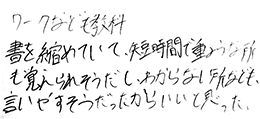 ワークなども教科
書を縮めていて、短時間で重要な所
も覚えられそうだし、わからない所なども、
言いやすそうだったからいいと思った。